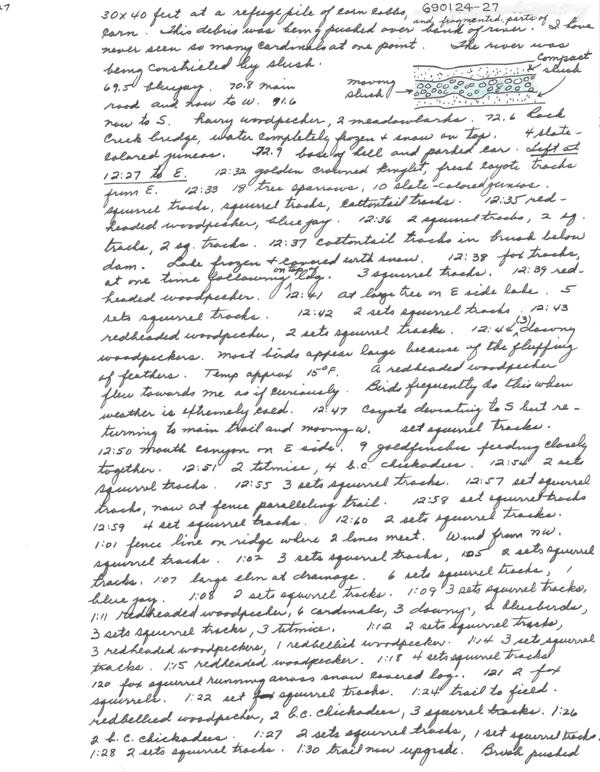 27
690124-27
30x40 feet at a refuge pile of corn cobbs, and fragmented parts of
corn. This debris was being pushed over bank of river. I have
never seen so many cardinals at one point. The river was
being constricted by slush.
Compact slush
moving slush
69.5 bluejay. 70.8 main
road and now to W. 91.6
now to S. Hairy woodpecker, 2 meadowlarks. 72.6 Rock
Creek bridge, water completely frozen & snow on top. 4 slate-
colored juncos. 72.9 base of hill and parked car. Left at
12:27 to E. 12:32 golden crowned kinglet, fresh coyote tracks
from E. 12:33 18 tree sparrows, 10 slate-colored juncos.
squirrel tracks, squirrel tracks, cottontail tracks. 12:35 red-
headed woodpecker, blue jay. 12:36 2 squirrel tracks, 2 sq.
tracks, 2 sq. tracks. 12:37 cottontail tracks in brush below
dam. Lake frozen & covered with snow. 12:38 fox tracks,
at one time following on top of log. 3 squirrel tracks. 12:39 red-
headed woodpecker. 12:41 at large tree on E side lake. 5
sets squirrel tracks. 12:42 2 sets squirrel tracks. 12:43
redheaded woodpecker, 2 sets squirrel tracks. 12:44 (3) downy
woodpeckers. Most birds appear large because of the fluffing
of feathers. Temp approx 15°F. A redheaded woodpecker
flew towards me as if curiously. Birds frequently do this when
weather is extremely cold. 12:47 Coyote deviating to S but re-
turning to main trail and moving W. set squirrel tracks.
12:50 mouth canyon on E side. 9 goldfinches feeding closely
together. 12:51 2 titmice, 4 b.c. chickadees. 12:54 2 sets
squirrel tracks. 12:55 3 sets squirrel tracks. 12:57 set squirrel
tracks, now at fence paralleling trail. 12:58 set squirrel tracks
12:59 4 set squirrel tracks. 12:60 2 sets squirrel tracks.
1:01 fence line on ridge where 2 lines meet. Wind from NW.
squirrel tracks. 1:02 3 sets squirrel tracks, 105 2 sets squirrel
tracks. 1:07 large elm at drainage. 6 sets squirrel tracks, 1
blue jay. 1:08 2 sets squirrel tracks. 1:09 3 sets squirrel tracks,
1:11 redheaded woodpecker, 6 cardinals, 3 downy, 2 bluebirds,
3 sets squirrel tracks, 3 titmice. 1:12 2 sets squirrel tracks,
3 redheaded woodpeckers, 1 redbellied woodpecker. 1:14 3 sets squirrel
tracks. 1:15 redheaded woodpecker. 1:18 4 sets squirrel tracks
120 fox squirrel running across snow covered log. 121 2 fox
squirrels. 1:22 set squirrel tracks. 1:24 trail to field.
redbellied woodpecker, 2 b.c. chickadees, 3 squirrel tracks. 1:26
2 b.c. chickadees. 1:27 2 sets squirrel tracks, 1 set squirrel tracks.
1:28 2 sets squirrel tracks. 1:30 trail now upgrade. Brush pushed